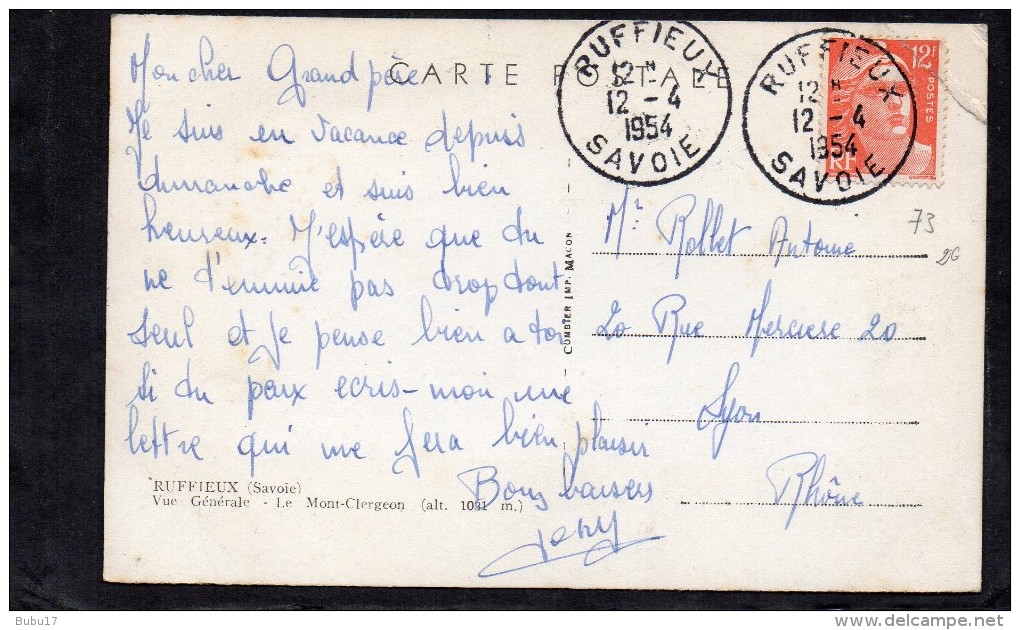 CARTE POSTALE
Mon cher Grand père
Je suis en vacance depuis
dimanche et suis bien
heureux. J'espère que du
ne d'ennuie pas trop dont
seul et je pense bien a toi
si du peux ecris-moi une
lettre qui me fera bien plaisir
Bons baisers
RUFFIEUX (Savoie)
Vue Générale - Le Mont-Clergeon (alt. 1031 m.)
COMBIER IMP. MACON
RUFFIEUX
12 H
12 -4
1954
SAVOIE
RUFFIEUX
12 H
12 -4
1954
SAVOIE
12F
POSTES
RF
73
Mr Rollet Antoine
20 Rue Merciere 20
Lyon
Rhône
Bubu17